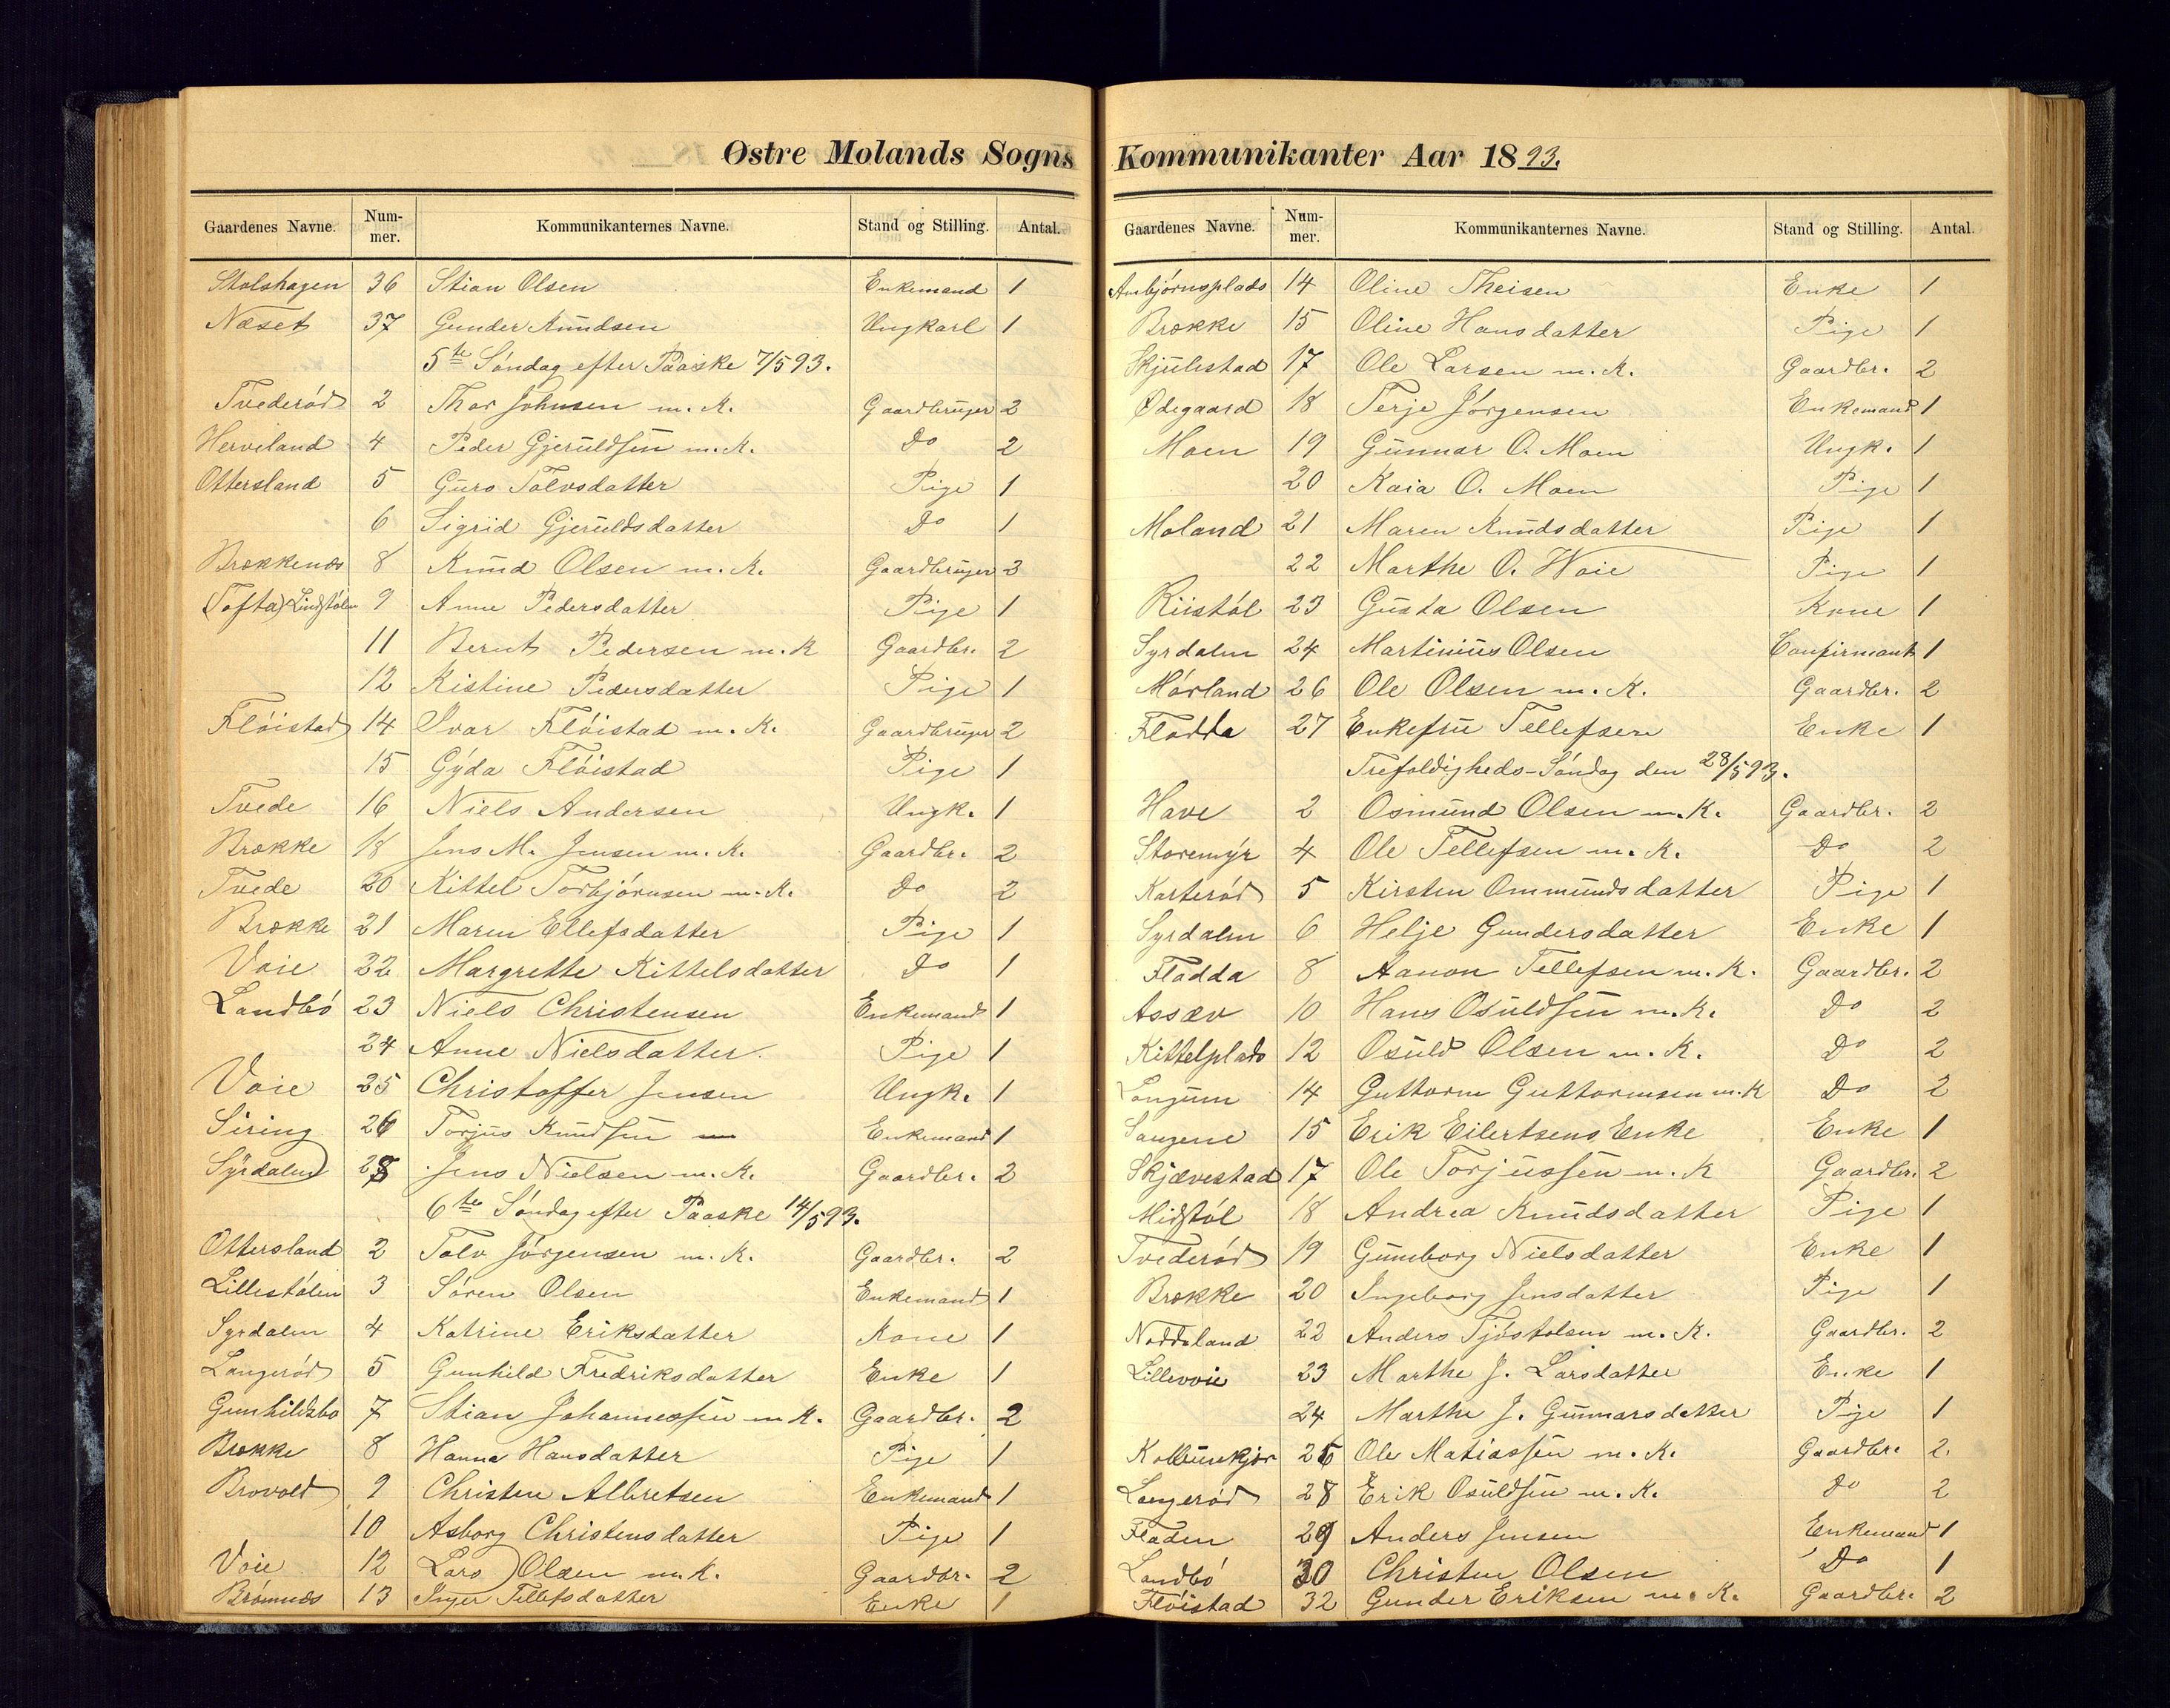 Østre Molands Sogns
Gaardenes Navne. Nummer. Kommunikanternes Navne. Stand og Stilling. Antal.
Stølshagen 36 Stian Olsen Enkemand 1
Næset 37 Gunder Knudsen Ungkarl 1
5te Söndag efter Paaske 7/5 93.
Tvederöd 2 Thor Johnsen m. K. Gaardbruger 2
Herveland 4 Peder Gjeruldsen m. K. Do 2
Ottersland 5 Guro Tolvsdatter Pige 1
6 Sigrid Gjeruldsdatter Do 1
Brækkenæs 8 Knud Olsen m. K. Gaardbruger 3
(Tofta) Lindstølen 9 Anne Pedersdatter Pige 1
11 Bernt Pedersen m. K Gaardbr. 2
12 Kistine Pedersdatter Pige 1
Flöistad 14 Ivar Flöistad m. K. Gaardbruger 2
15 Gyda Flöistad Pige 1
Tvede 16 Niels Andersen Ungk. 1
Brække 18 Jens M. Jensen m. K. Gaardbr. 2
Tvede 20 Kittel Torbjörnsen m. K. Do 2
Brække 21 Maren Ellefsdatter Pige 1
Voie 22 Margrethe Kittelsdatter Do 1
Landbö 23 Niels Christensen Enkemand 1
24 Anne Nielsdatter. Pige 1
Voie 25 Christoffer Jensen Ungk. 1
Siring 26 Torjus Knudsen Enkemand 1
Syrdalen 28 Jens Nielsen m. K. Gaardbr. 2
6te Söndag efter Paaske 14/5 93.
Ottersland 2 Tolv Jörgensen m. K. Gaardbr. 2
Lillestölen 3 Sören Olsen Enkemand 1
Syrdalen 4 Katrine Eriksdatter Kone 1
Langeröd 5 Gunhild Fredriksdatter Enke 1
Gunhildsbo 7 Stian Johannessen m. K. Gaardbr. 2
Brække 8 Hanna Hansdatter Pige 1
Brovold 9 Christen Albretsen Enkemand 1
10 Asborg Christensdatter Pige 1
Voie 12 Lars Olsen m. K. Gaardbr. 2
Brömnæs 13 Inger Tellefsdatter Enke 1
Kommunikanter Aar 1893.
Gaardenes Navne. Nummer. Kommunikanternes Navne. Stand og Stilling. Antal.
Anbjörnsplads 14 Oline Theisen Enke 1
Brække 15 Oline Hansdatter Pige 1
Skjulestad 17 Ole Larsen m. K. Gaardbr. 2
Ødegaard 18 Terje Jörgensen Enkemand 1
Moen 19 Gunnar O. Moen Ungk. 1
20 Kaia O. Moen Pige 1
Moland 21 Maren Knudsdatter Pige 1
22 Marthe O. Woie Pige 1
Riistöl 23 Gusta Olsen Kone 1
Syrdalen 24 Martinius Olsen Confirmant 1
Mörland 26 Ole Olsen m. K. Gaardbr. 2
Flødda 27 Enkefru Tellefsen Enke 1
Trefoldigheds-Söndag den 28/5 93.
Have 2 Osmund Olsen m. K. Gaardbr. 2
Storemyr 4 Ole Tellefsen m. K. Do 2
Karteröd 5 Kirsten Ommundsdatter Pige 1
Syrdalen 6 Helje Gundersdatter Enke 1
Fladda 8 Aanon Tellefsen m. K. Gaardbr. 2
Assæv 10 Hans Osuldsen m. K. Do 2
Kittelplads 12 Osuld Olsen m. K. Do 2
Langum 14 Guttorm Guttormsen m. K Do 2
Sangene 15 Erik Eilertsens Enke Enke 1
Skjævestad 17 Ole Torjussen m. K Gaardbr. 2
Midstöl 18 Andrea Knudsdatter Pige 1
Tvederöd 19 Gumborg Nielsdatter Enke 1
Brække 20 Ingeborg Jensdatter Pige 1
Næddeland 22 Anders Tjöstolsen m. K. Gaardbr. 2
Lillevoie 23 Marthe J. Larsdatter Enke 1
24 Marthe J. Gunnarsdatter Pige 1
26 Ole Matiassen m. K. Gaardbr. 2.
Langeröd 28 Erik Osuldsen m. K. Do 2
Fladen 29 Anders Jensen Enkemand 1
Landbö 30 Christen Olsen Do 1
Flöistad 32 Gunder Eriksen m. K. Gaardbr. 2